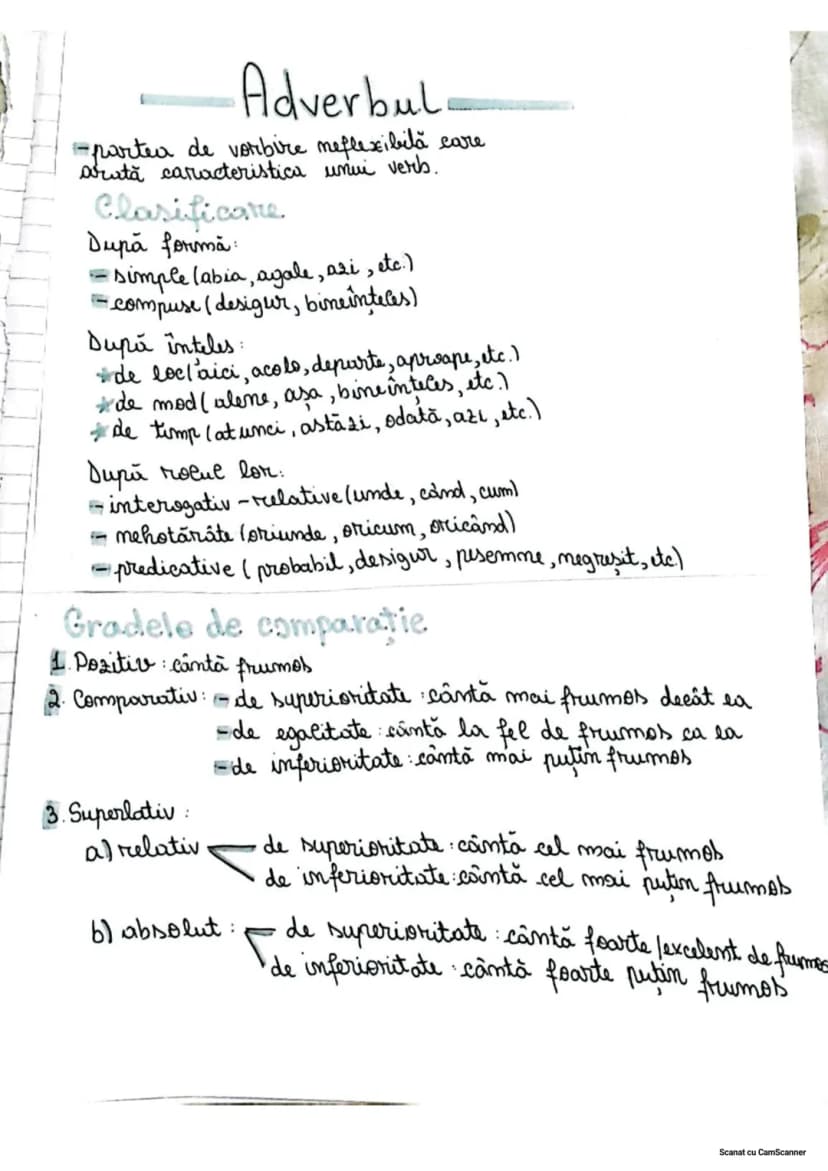 Adverbul
-partea de vorbire neflexibilă care
arată caracteristica unui verb.
Clasificare
După formă:
- simple (abia, agale, azi, etc.)
- compuse (desigur, bineînțeles)
După înteles:
* de loc(aici, acolo, departe, aproape, etc.)
* de mod( alene, așa, bineînțeles, etc.)
* de timp (atunci, astăzi, odată, azi, etc.)
După rolul lor:
- interogativ - relative (unde, când, cum)
- nehotărâte (oriunde, oricum, oricând)
- predicative ( probabil, desigur, pesemne, negreșit, etc)
Gradele de comparație
1. Pozitiv : cântă frumos
2. Comparativ: - de superioritate : cântă mai frumos decât ea
- de egalitate : cântă la fel de frumos ca ea
- de inferioritate : cântă mai puțin frumos
3. Superlativ :
a) relativ de superioritate : cântă cel mai frumos
de inferioritate : cântă cel mai puțin frumos
b) absolut : de superioritate : cântă foarte /excelent de frumos
de inferioritate : cântă foarte puțin frumos
Scanat cu CamScanner